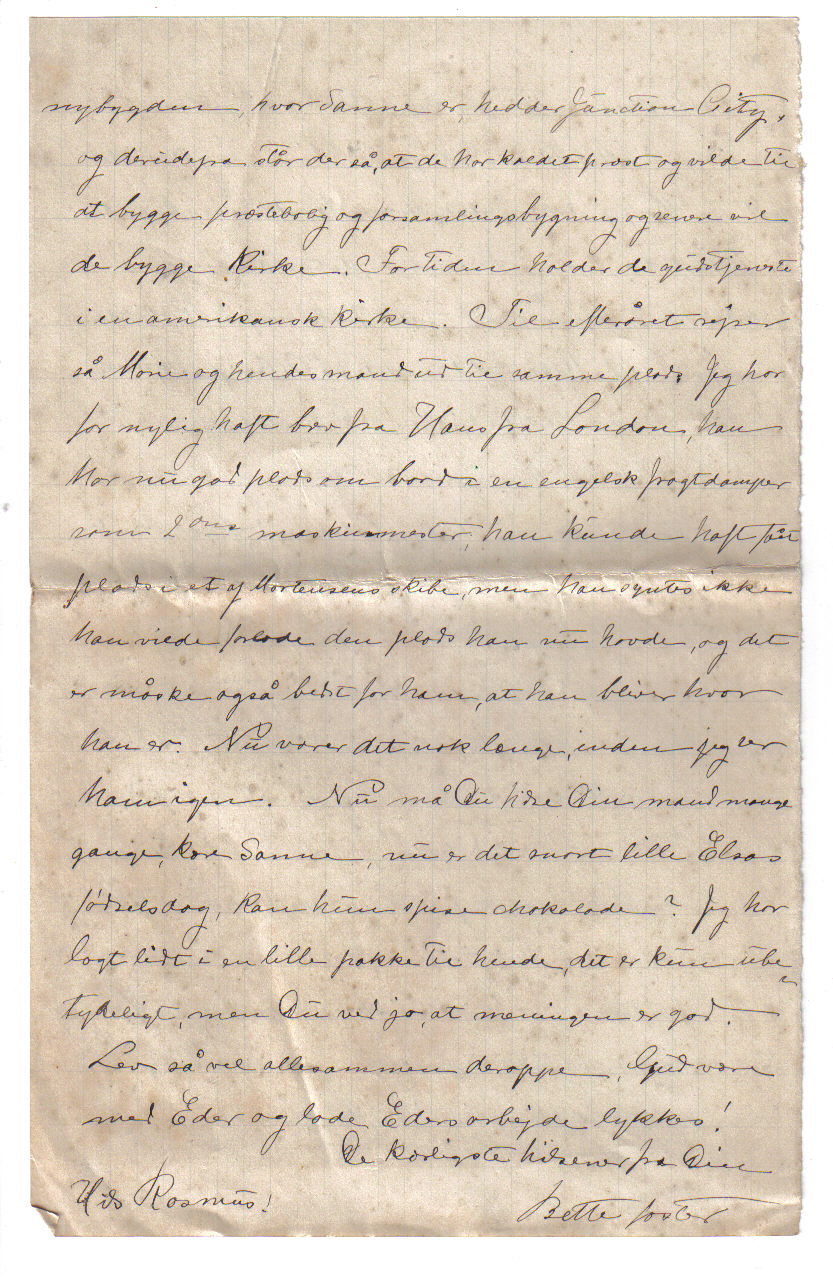 nybygden, hvor Sanne er, hedder Junction City,
og derudefra står der så, at de har kaldet præst og vilde til
at bygge præstebolig og forsamlingsbygning og senere vil
de bygge Kirke. For tiden holder de gudstjeneste
i en amerikansk Kirke. Til efteråret rejser
så Marie og hendes mand ud til samme plads. Jeg har
for nylig haft brev fra Hans fra London, han
har nu god plads om bord i en engelsk fragtdamper
som 2den maskinmester, han kunde haft fået
plads i et af Mortensens skibe, men han syntes ikke
han vilde forlade den plads han nu havde, og det
er måske også bedst for ham, at han bliver hvor
han er. Nu varer det nok længe, inden jeg ser
ham igen. Nu må Du hilse Din mand mange
gange, kære Sanne, nu er det snart lille Elsas
fødselsdag, kan hun spise chokolade? Jeg har
lagt lidt i en lille pakke til hende, det er kun ube-
tydeligt, men Du ved jo, at meningen er god.
Lev så vel allesammen deroppe, Gud være
med Eder og lade Eders arbejde lykkes!
De kærligste hilsener fra Din
Hils Rasmus!
Bette faster